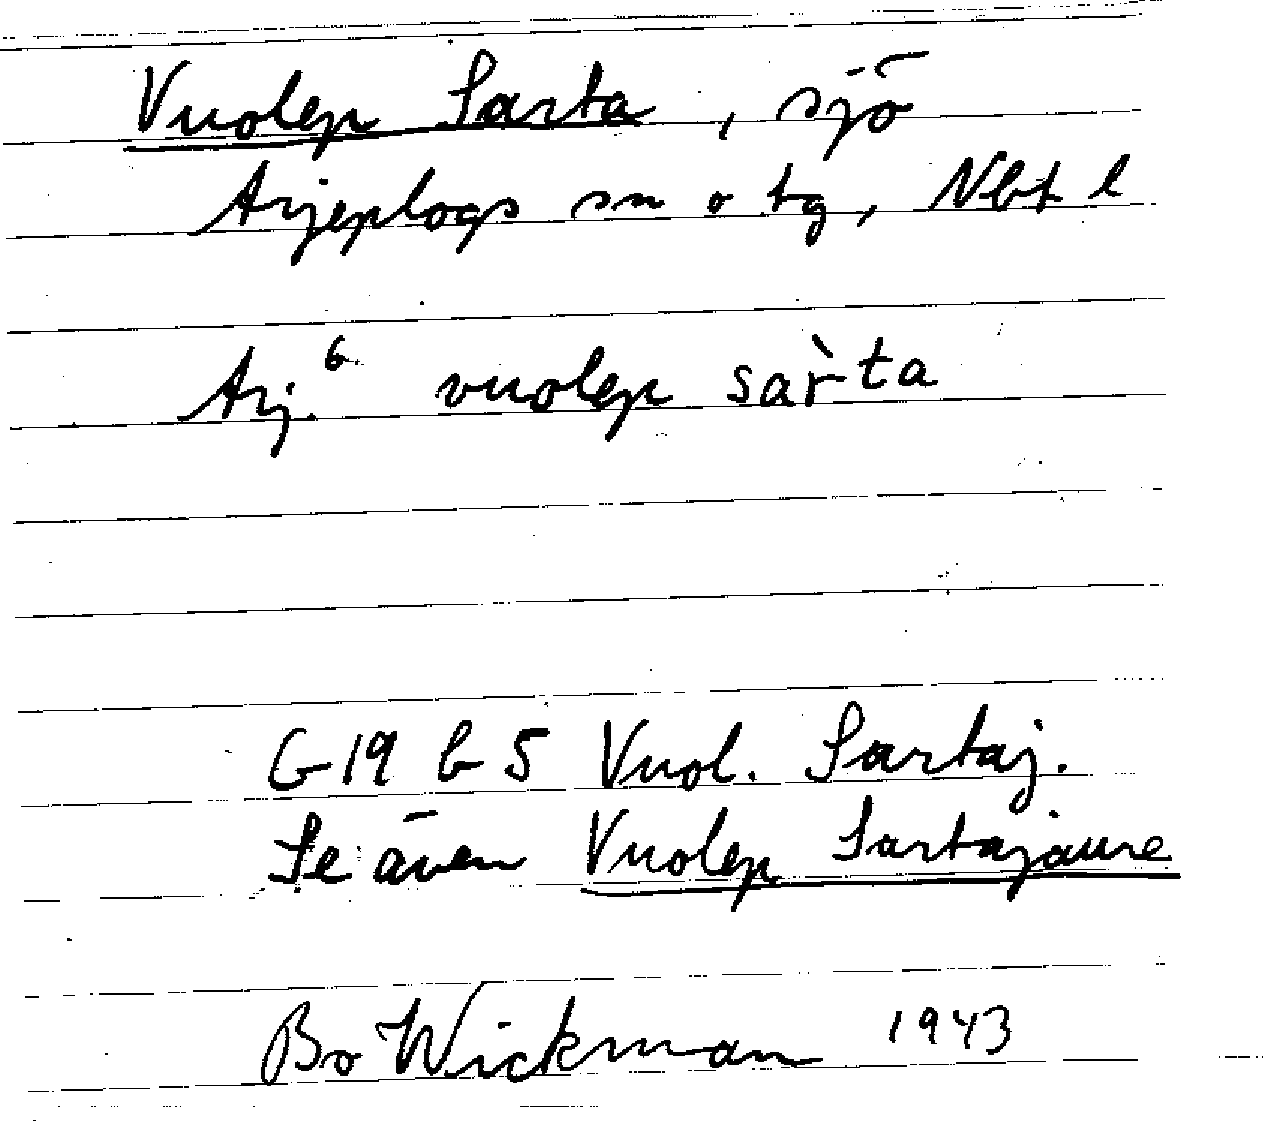 Vuolep Sarta, sjö
Arjeplogs sn o tg, Nbt l
Arj.⁶ vuolep sar̀ta
G 19 b 5 Vuol. Sartaj.
Se även Vuolep Sartajaure
Bo Wickman 1943